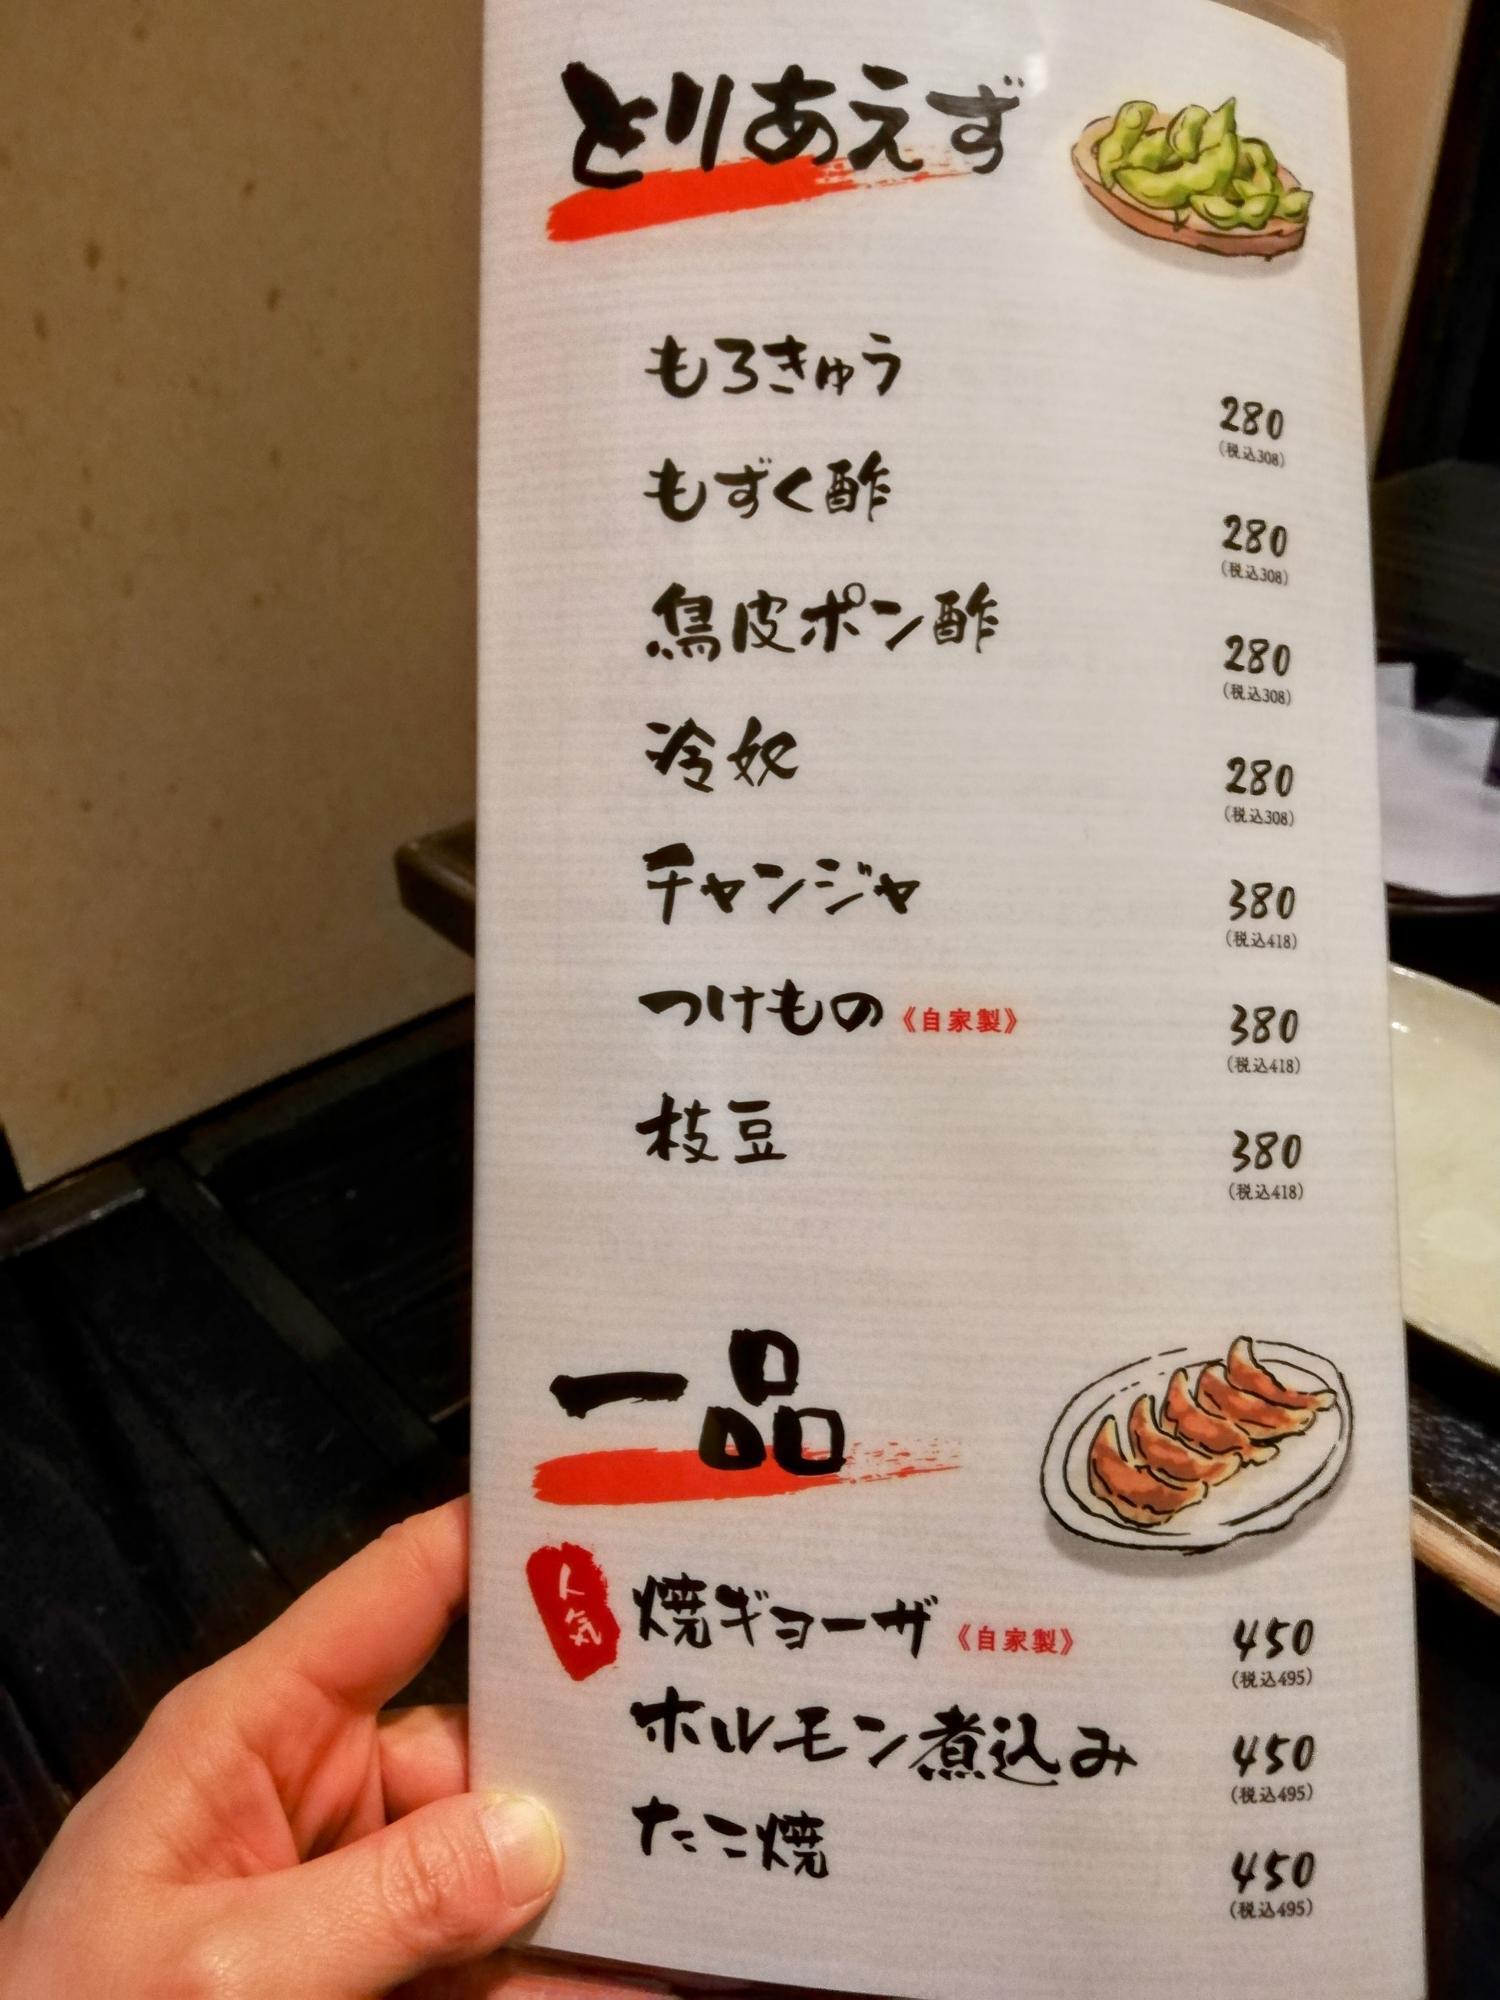 とりあえず
もろきゅう 280
(税込308)
もずく酢 280
(税込308)
鳥皮ポン酢 280
(税込308)
冷奴 280
(税込308)
チャンジャ 380
(税込418)
つけもの《自家製》 380
(税込418)
枝豆 380
(税込418)
一品
人気 焼ギョーザ《自家製》 450
(税込495)
ホルモン煮込み 450
(税込495)
たこ焼 450
(税込495)